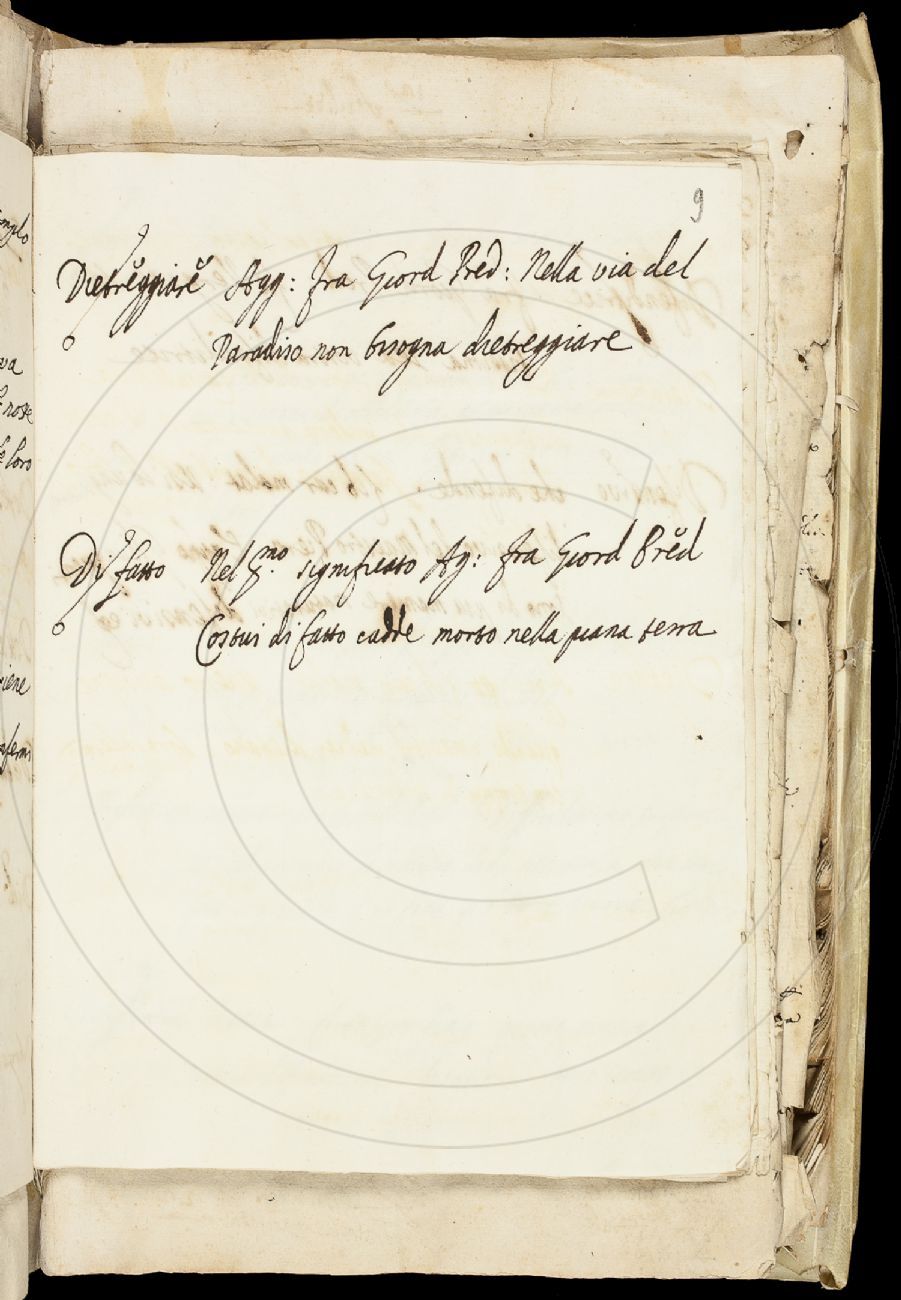 9
Dietreggiare Agg: fra Giord Pred: Nella via del
Paradiso non bisogna dietreggiare
Di fatto Nel significato Ag: fra Giord Pred
Costui di fatto cadde morto nella piana terra
nose
loro
viene